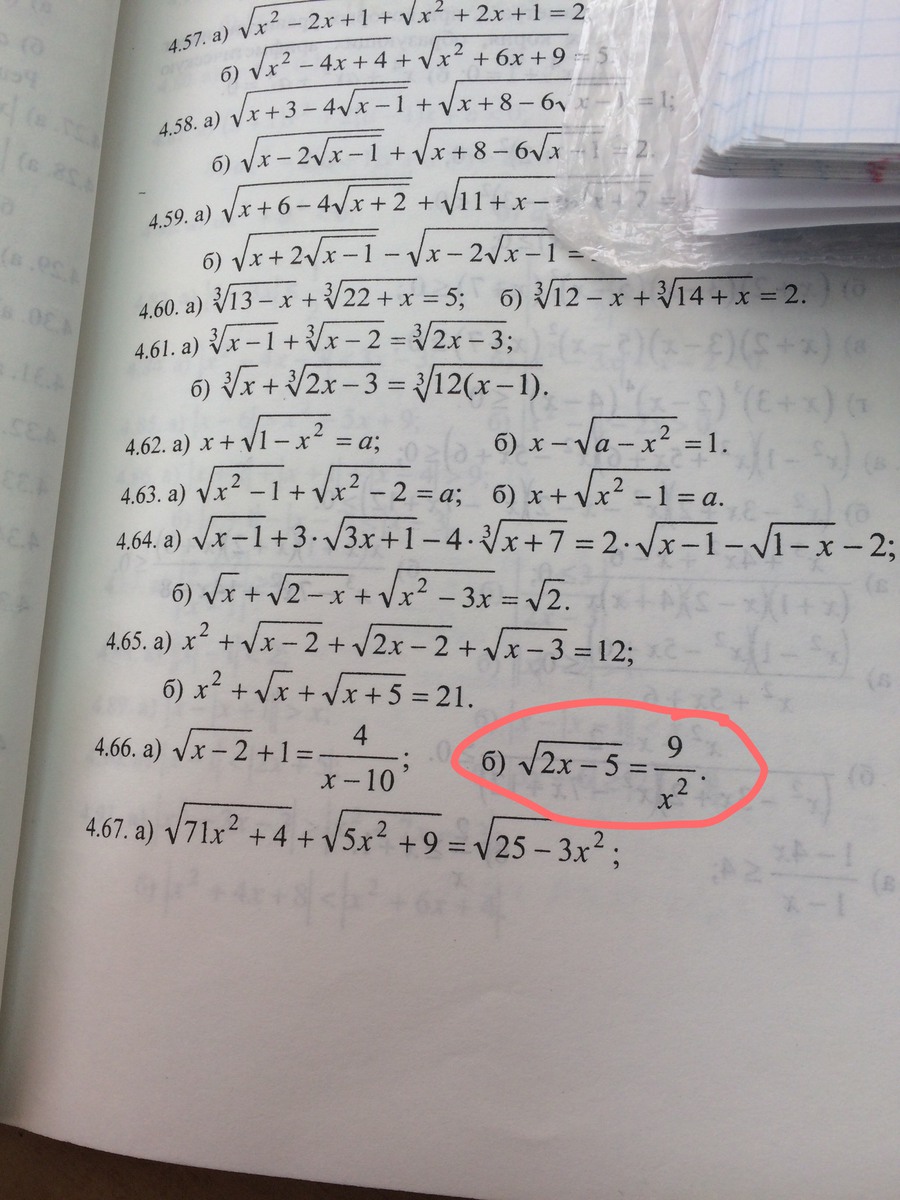 4.57. а) √(x² − 2x + 1) + √(x² + 2x + 1) = 2
б) √(x² − 4x + 4) + √(x² + 6x + 9) = 5
4.58. а) √(x + 3 − 4√(x − 1)) + √(x + 8 − 6√(x − 1)) = 1;
б) √(x − 2√(x − 1)) + √(x + 8 − 6√(x − 1)) = 2.
4.59. а) √(x + 6 − 4√(x + 2)) + √(11 + x −
б) √(x + 2√(x − 1)) − √(x − 2√(x − 1)) =
4.60. а) ∛(13 − x) + ∛(22 + x) = 5; б) ∛(12 − x) + ∛(14 + x) = 2.
4.61. а) ∛(x − 1) + ∛(x − 2) = ∛(2x − 3);
б) ∛x + ∛(2x − 3) = ∛(12(x − 1)).
4.62. а) x + √(1 − x²) = a; б) x − √(a − x²) = 1.
4.63. а) √(x² − 1) + √(x² − 2) = a; б) x + √(x² − 1) = a.
4.64. а) √(x − 1) + 3·√(3x + 1) − 4·∛(x + 7) = 2·√(x − 1) − √(1 − x) − 2;
б) √x + √(2 − x) + √(x² − 3x) = √2.
4.65. а) x² + √(x − 2) + √(2x − 2) + √(x − 3) = 12;
б) x² + √x + √(x + 5) = 21.
4.66. а) √(x − 2) + 1 = 4/(x − 10); б) √(2x − 5) = 9/x².
4.67. а) √(71x² + 4) + √(5x² + 9) = √(25 − 3x²);